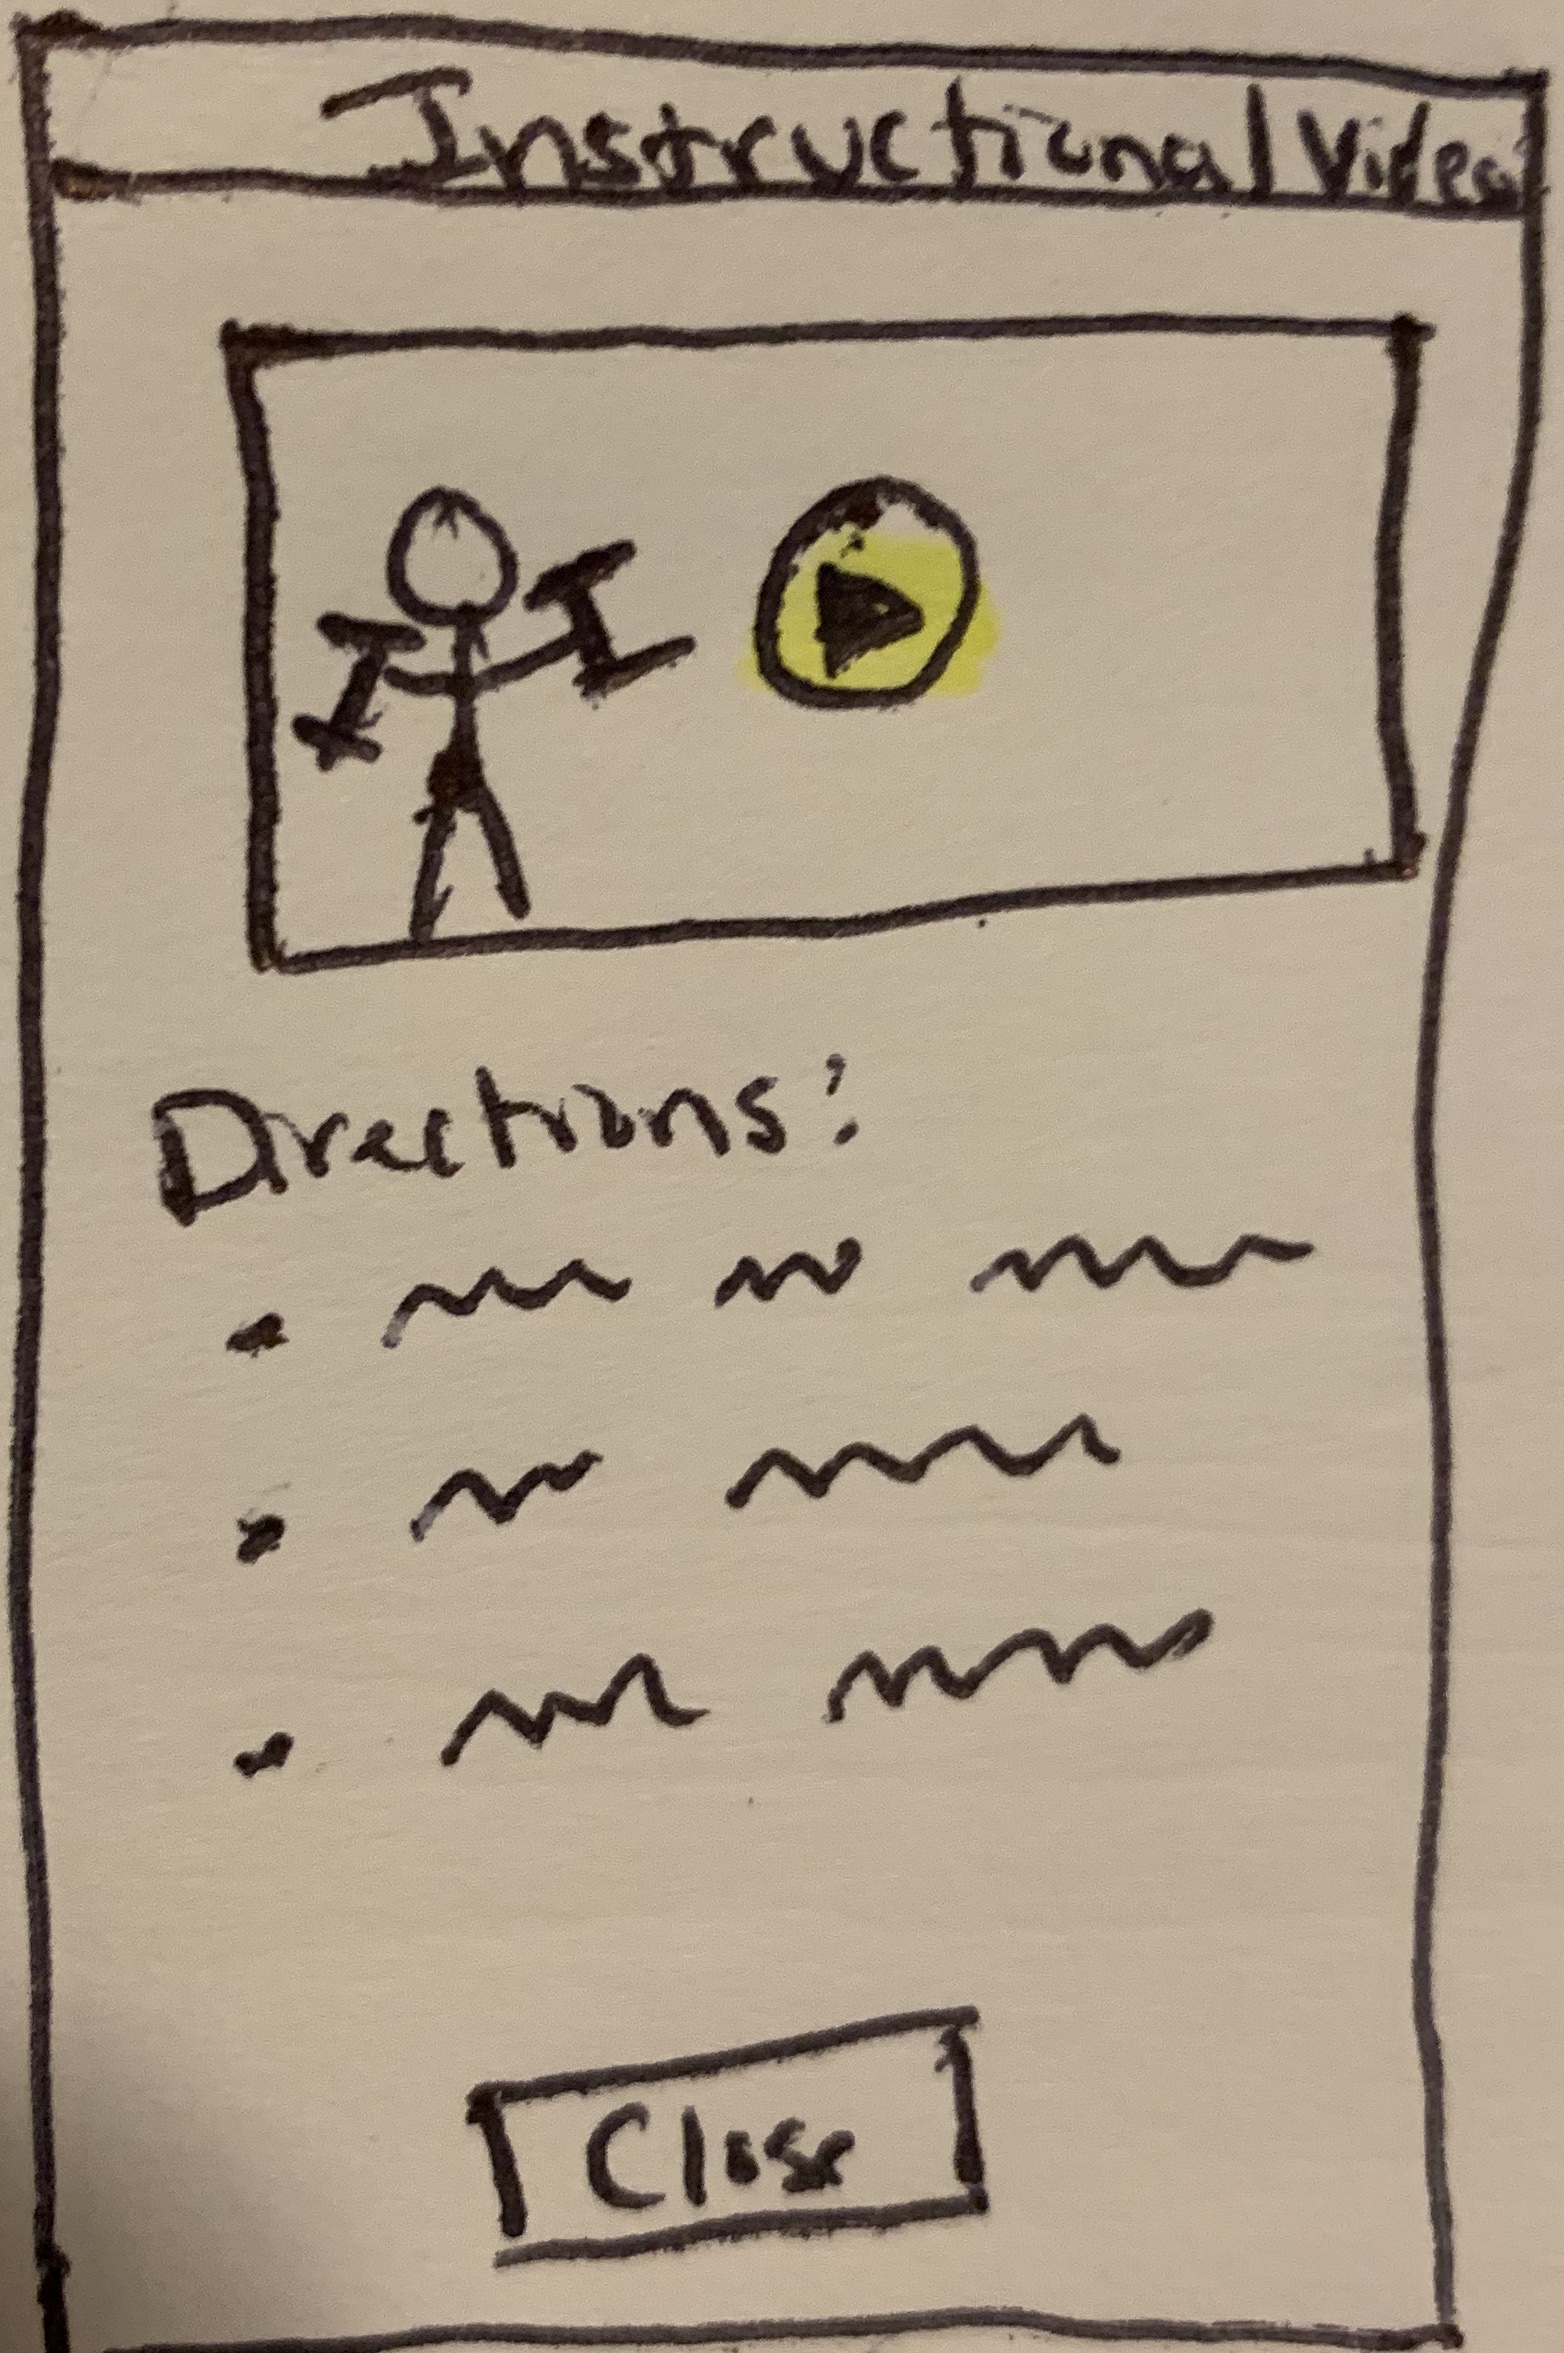 Instructional Video
Directions:
Close